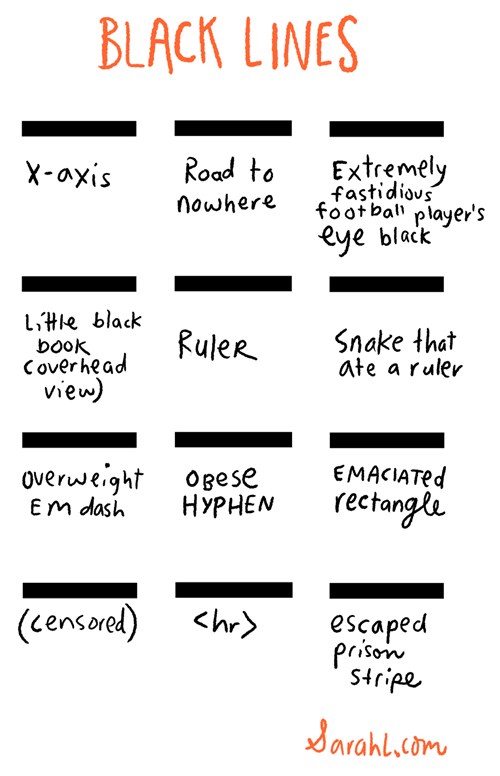 BLACK LINES
X-axis
Road to
nowhere
Extremely
fastidious
football player's
eye black
Little black
book
(overhead
view)
Ruler
Snake that
ate a ruler
Overweight
Em dash
OBESE
HYPHEN
EMACIATED
rectangle
(censored)
<hr>
escaped
prison
stripe
Sarahl.com